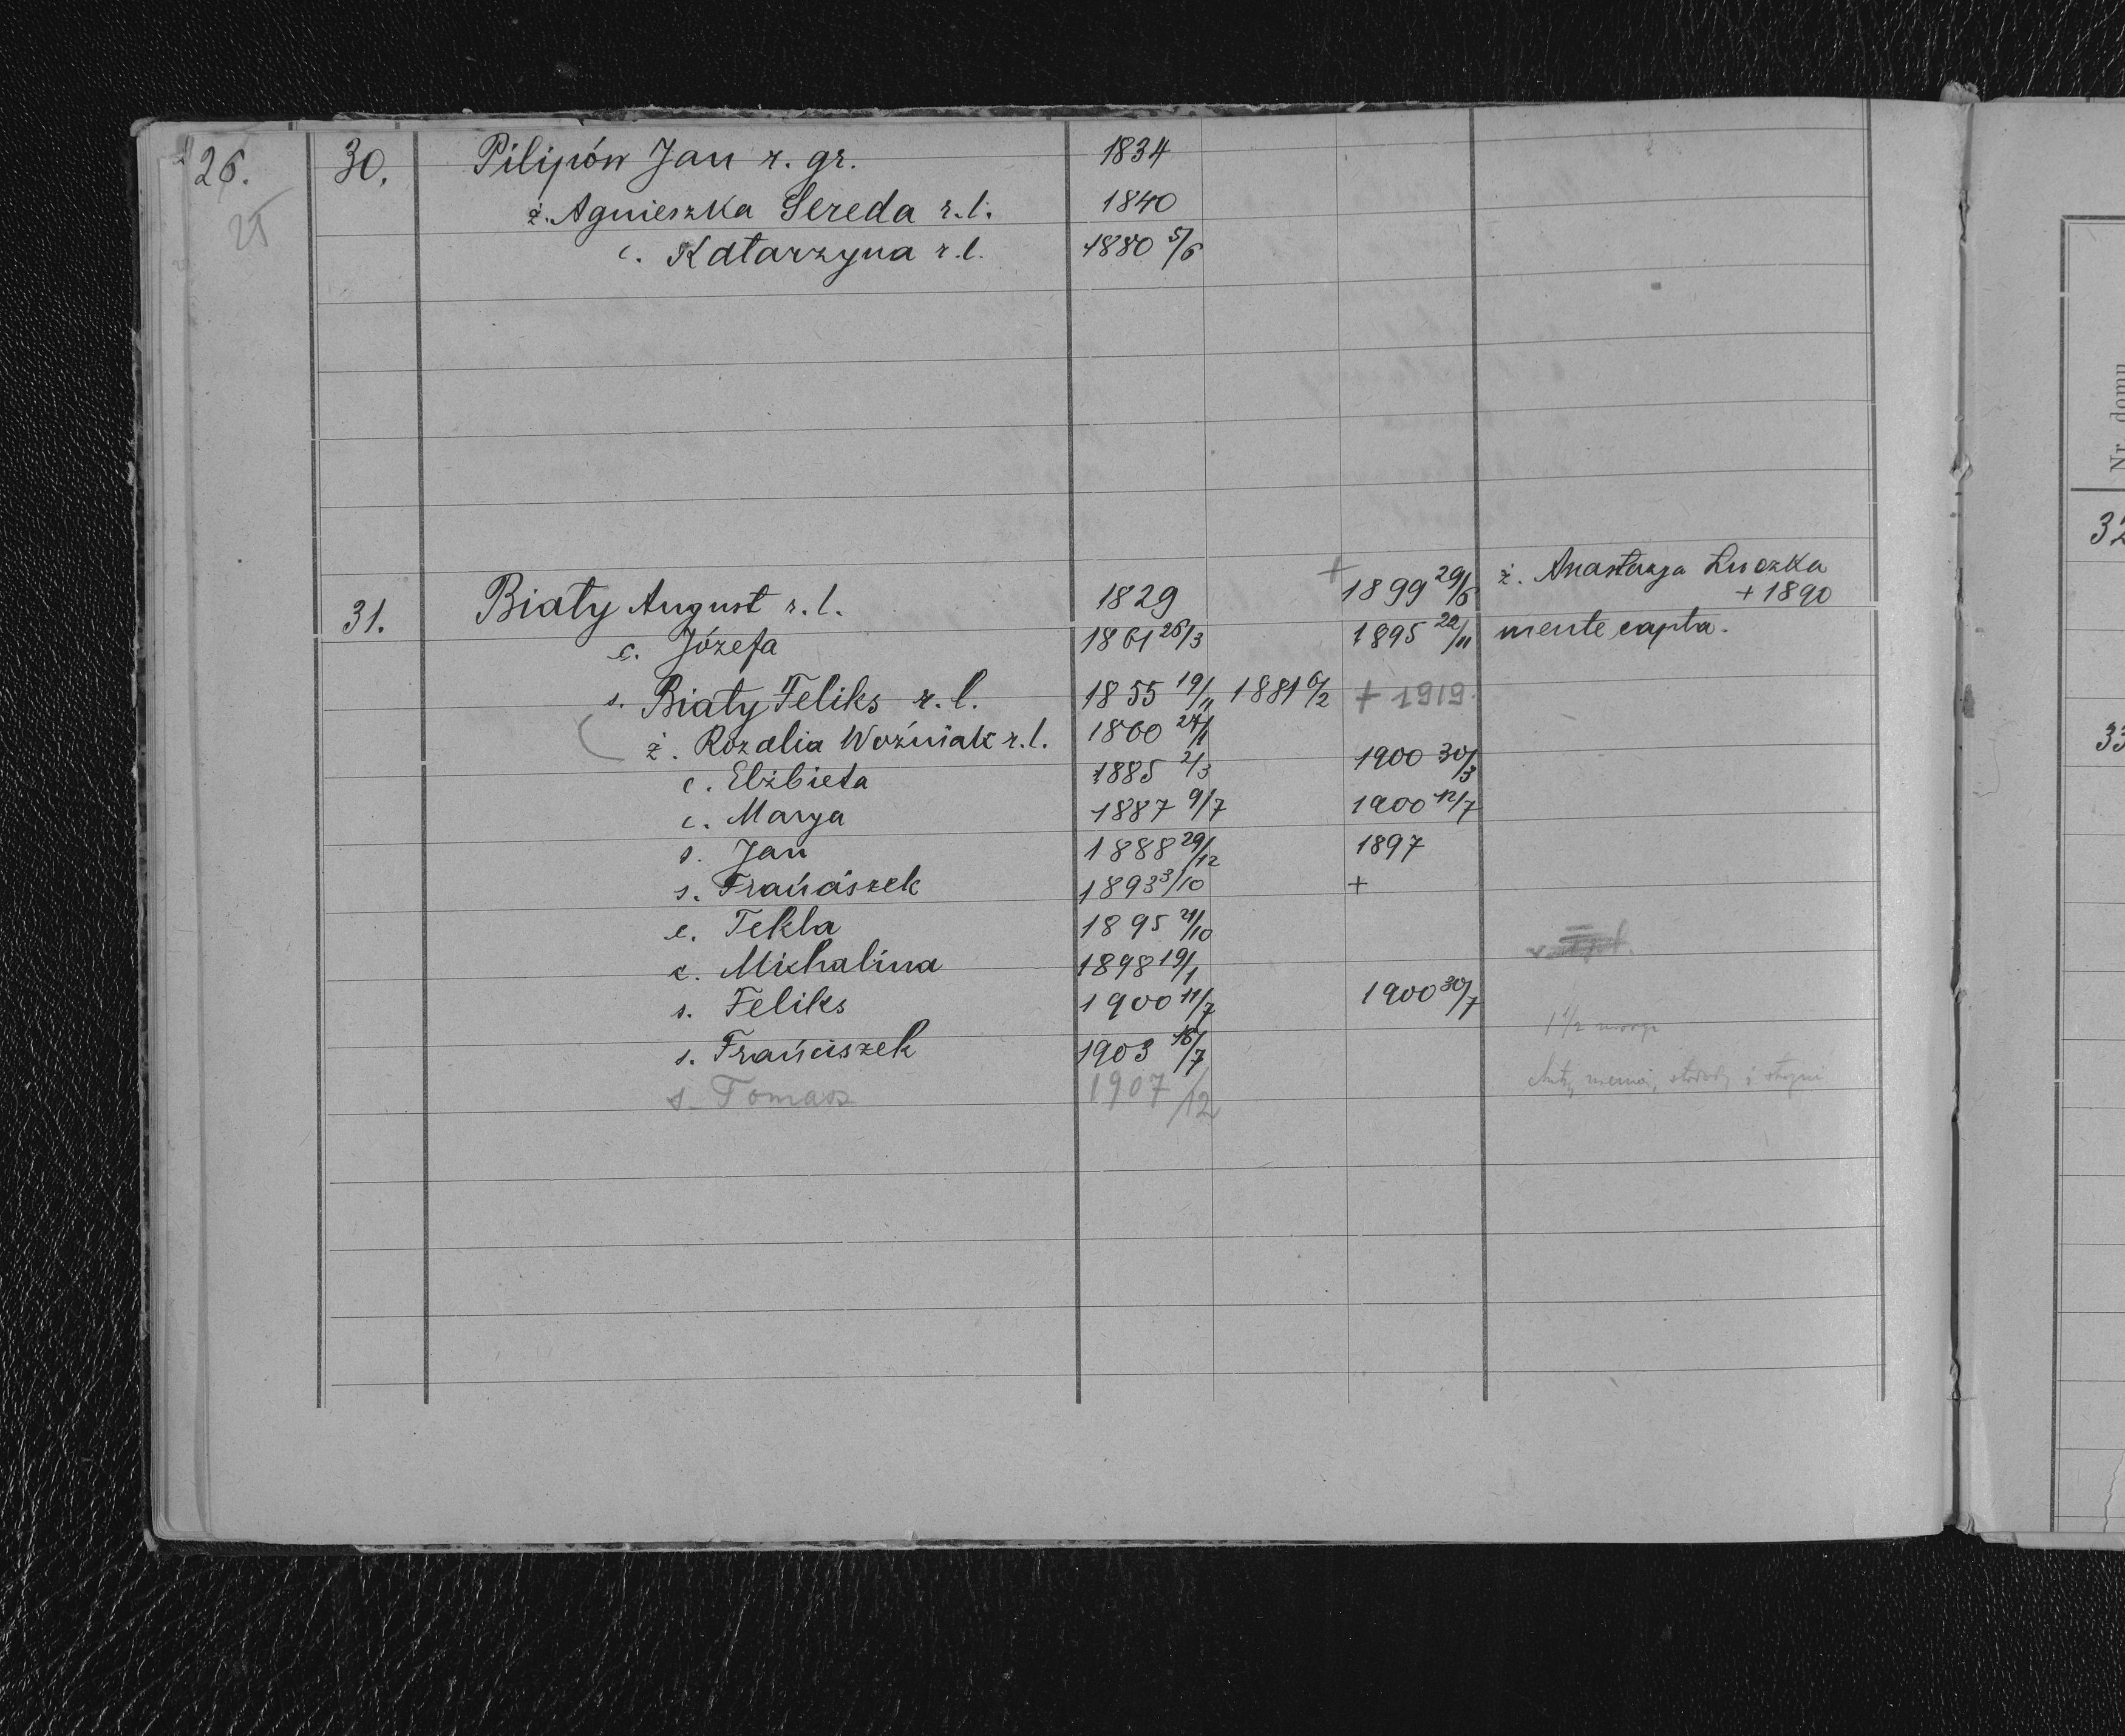 26.
25
30. Pilipów Jan r. gr. 1834
ż. Agnieszka Sereda r. l. 1840
c. Katarzyna r. l. 1880 5/6
31. Biały August r. l. 1829 + 1899 29/6 ż. Anastazya Łuczka
+ 1890
c. Józefa 1861 26/3 1895 22/11 mente capta.
s. Biały Feliks r. l. 1855 19/11 1881 6/2 + 1919.
ż. Rozalia Woźniak r. l. 1860 24/1
c. Elżbieta 1885 2/3 1900 30/3
c. Marya 1887 9/7 1900 12/7
s. Jan 1888 29/12 1897
s. Franciszek 1893 3/10 +
c. Tekla 1895 21/10
c. Michalina 1898 19/1
s. Feliks 1900 11/7 1900 30/7
1 1/2 morga
s. Franciszek 1903 18/7
s. Tomasz 1907 /12
Nr. domu
32
33